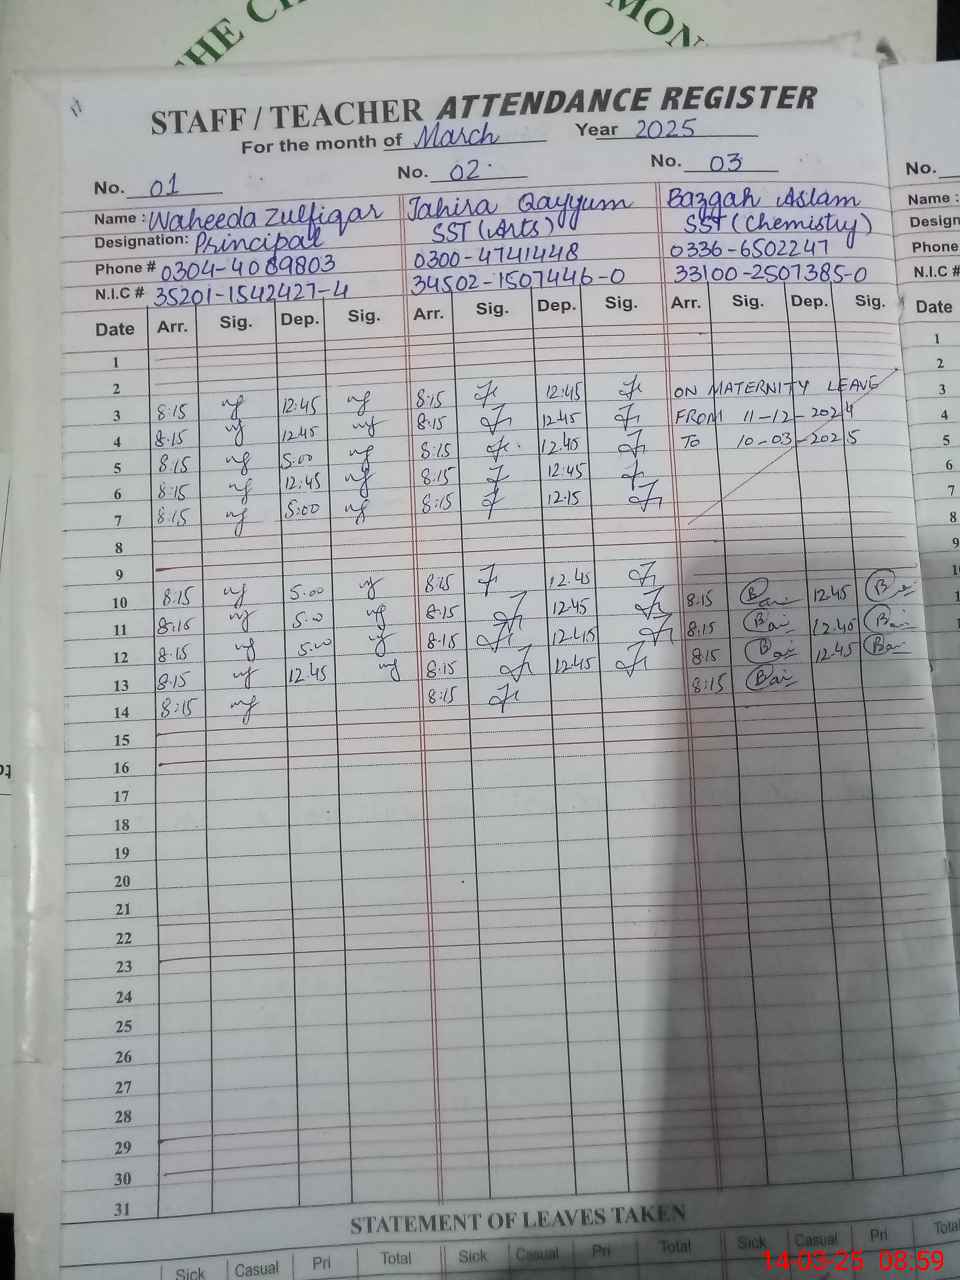 THE CH
MON
STAFF / TEACHER ATTENDANCE REGISTER
For the month of March Year 2025
No. 01 No. 02 No. 03 No.
Name : Waheeda Zulfiqar Tahira Qayyum Bazgah Aslam Name :
Designation: Principal SST (Arts) SST (Chemistry) Design
Phone # 0304-4089803 0300-4741448 0336-6502247 Phone
N.I.C # 35201-1542427-4 34502-1507446-0 33100-2507385-0 N.I.C #
Date Arr. Sig. Dep. Sig. Arr. Sig. Dep. Sig. Arr. Sig. Dep. Sig. Date
1 1
2 2
3 8:15 12:45 8:15 12:45 ON MATERNITY LEAVE 3
4 8:15 12:45 8:15 12:45 FROM 11-12-2024 4
5 8:15 5:00 8:15 12:40 TO 10-03-2025 5
6 8:15 12:45 8:15 12:45 6
7 8:15 5:00 8:15 12:15 7
8 8
9 9
10 8:15 5:00 8:15 12:45 8:15 12:45 10
11 8:15 5:00 8:15 12:45 8:15 12:40
12 8:15 5:00 8:15 12:45 8:15 12:45
13 8:15 12:45 8:15 12:45 8:15
14 8:15 8:15
15
16
17
18
19
20
21
22
23
24
25
26
27
28
29
30
31
STATEMENT OF LEAVES TAKEN
Sick Casual Pri Total Sick Casual Pri Total Sick Casual Pri Total
14-03-25 08:59